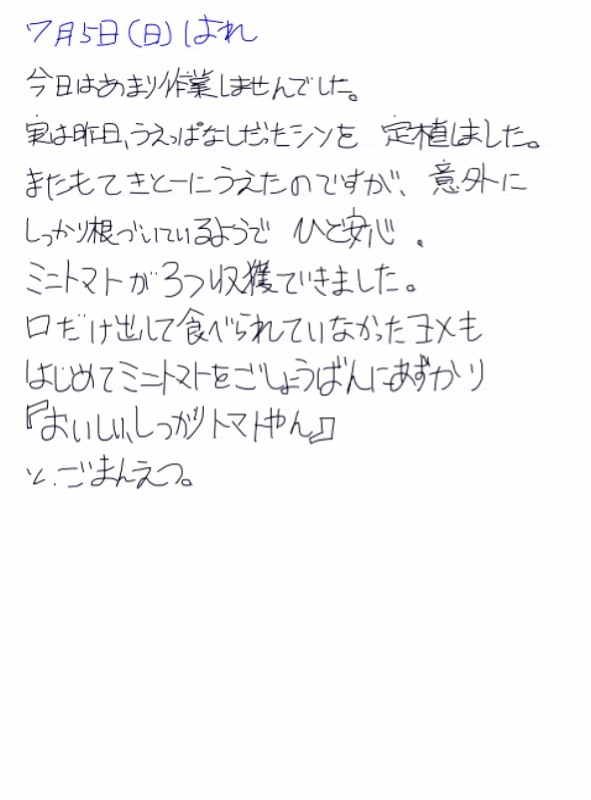 7月5日(日)はれ
今日はあまり作業しませんでした。
実は昨日、うえっぱなしだったシソを 定植しました。
またもてきとーにうえたのですが、意外に
しっかり根づいているようで ひと安心。
ミニトマトが3つ収穫できました。
口だけ出して食べられていなかったヨメも
はじめてミニトマトをごしょうばんにあずかり
『おいしい、しっかりトマトやん』
と、ごまんえつ。